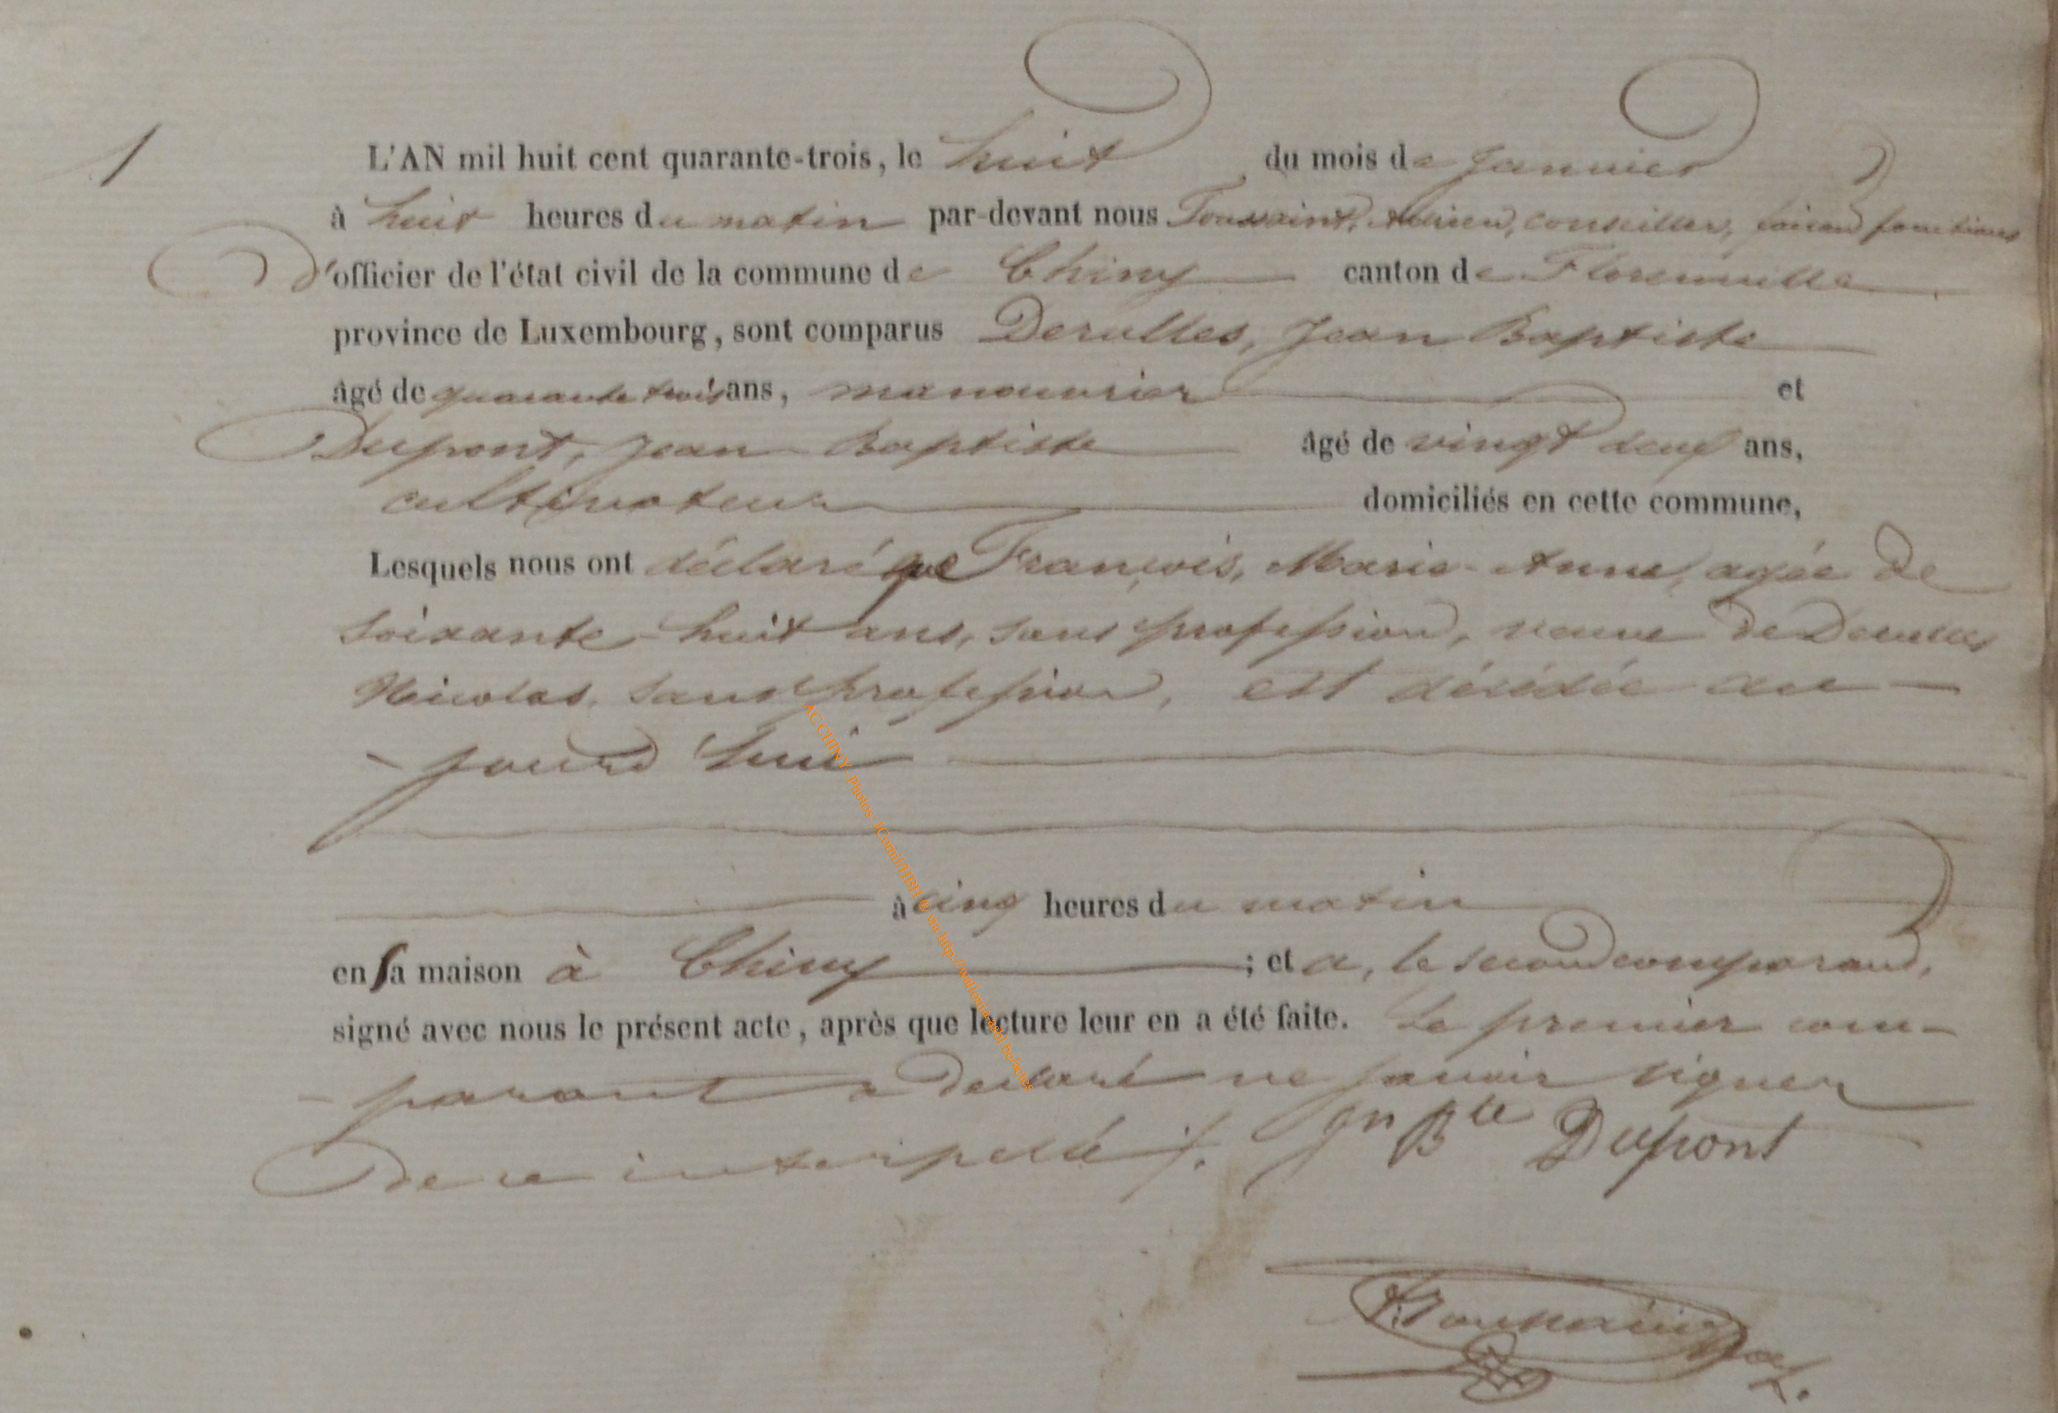 1
L'AN mil huit cent quarante-trois, le huit du mois de Janvier
à huit heures du matin par-devant nous Toussaint, Adrien, conseiller, faisant fonctions
d'officier de l'état civil de la commune de Chiny canton de Florenville
province de Luxembourg, sont comparus Derulles, Jean Baptiste
âgé de quarante trois ans, manouvrier et
Dupont, Jean Baptiste âgé de vingt deux ans,
cultivateur domiciliés en cette commune,
Lesquels nous ont déclaré que François, Marie-Anne, agée de
soixante-huit ans, sans profession, veuve de
Nicolas, sans profession, est décédée au-
-jourd'hui
à cinq heures du matin
en sa maison à Chiny ; et a, le second comparant,
signé avec nous le présent acte, après que lecture leur en a été faite. Le premier com-
-parant a declaré ne savoir signer
de ce interpellé.
Jn Bte Dupont
A. Toussaint
AC CHINY Photos